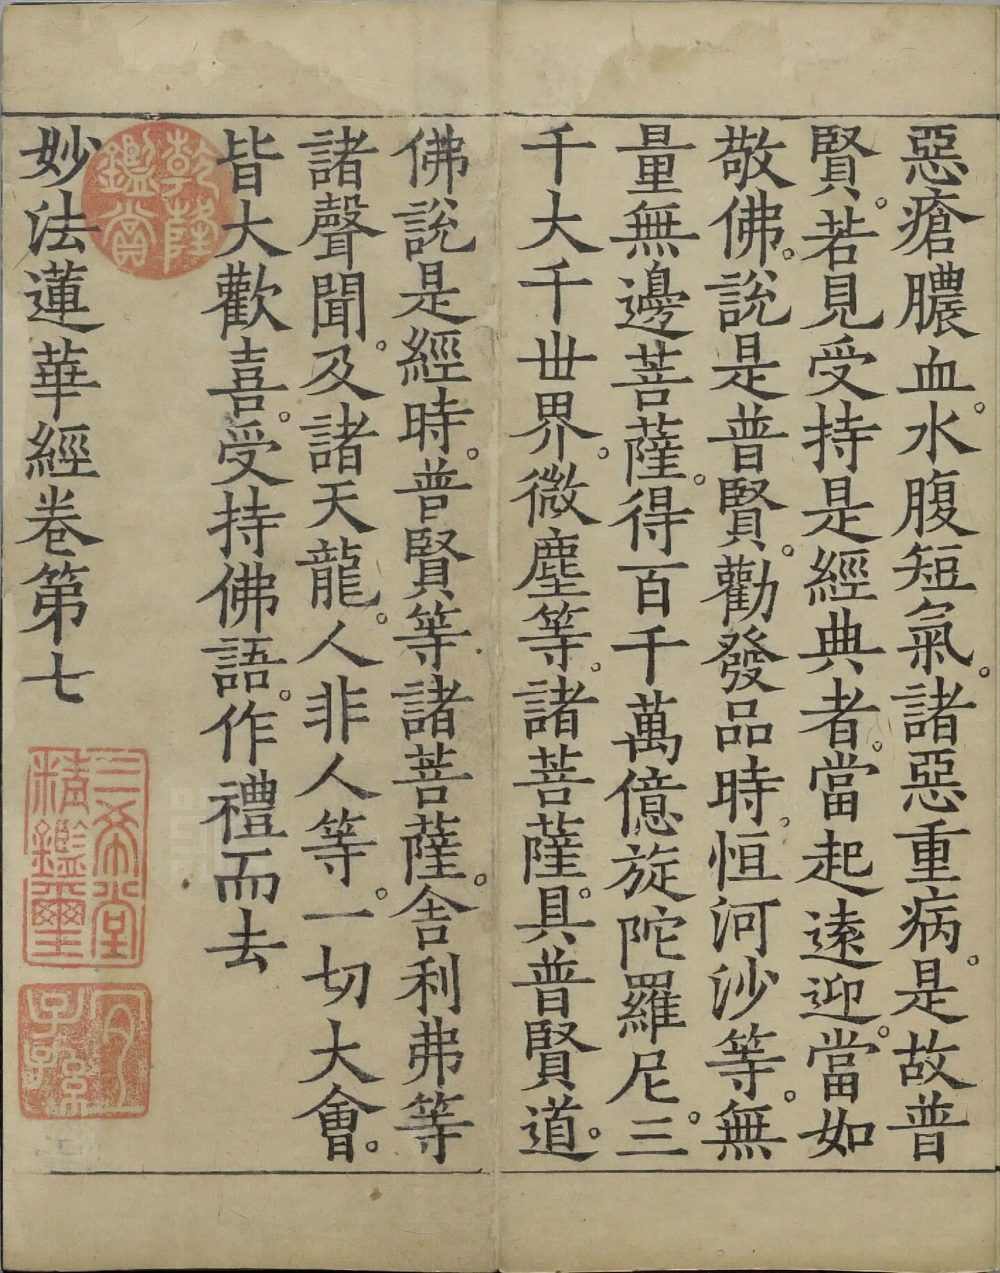 惡瘡膿血。水腹短氣。諸惡重病。是故普
賢。若見受持是經典者。當起遠迎。當如
敬佛。說是普賢。勸發品時。恒河沙等。無
量無邊菩薩。得百千萬億旋陀羅尼。三
千大千世界。微塵等。諸菩薩。具普賢道。
佛說是經時。普賢等諸菩薩。舍利弗等
諸聲聞。及諸天龍。人非人等。一切大會。
皆大歡喜。受持佛語。作禮而去
妙法蓮華經卷第七
乾隆鑑賞
三希堂精鑑璽
宜子孫